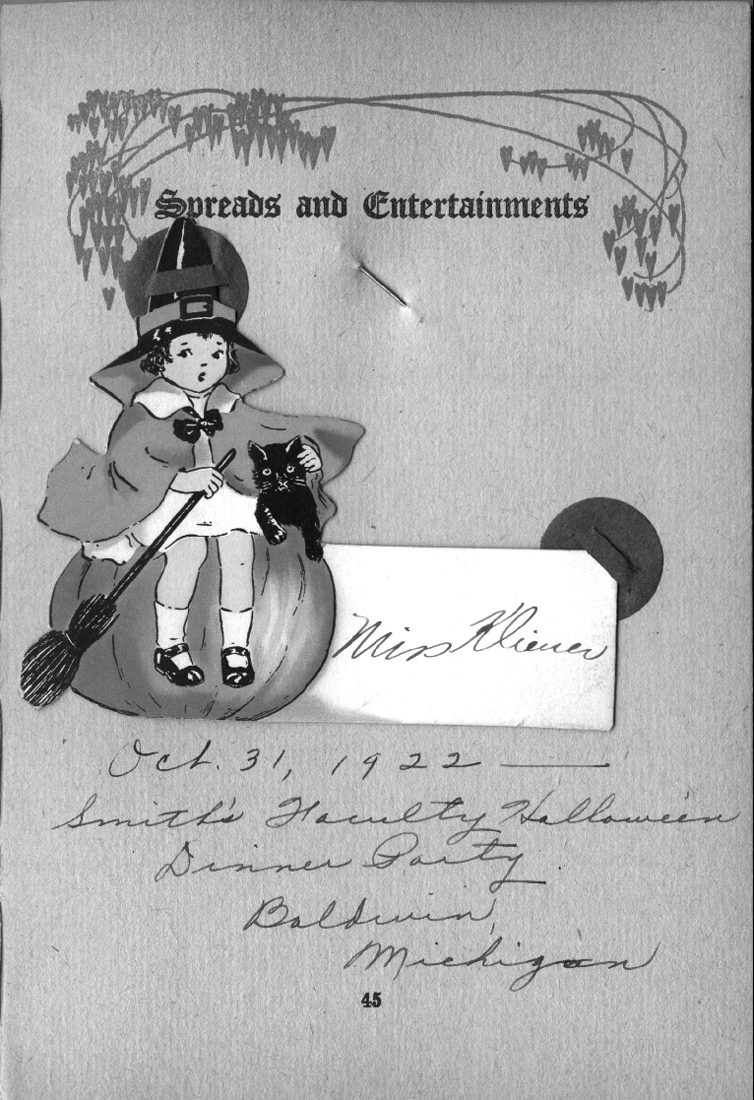 Spreads and Entertainments
Miss Kliener
Oct. 31, 1922 —
Smith's Faculty Halloween
Dinner Party
Baldwin,
Michigan
45